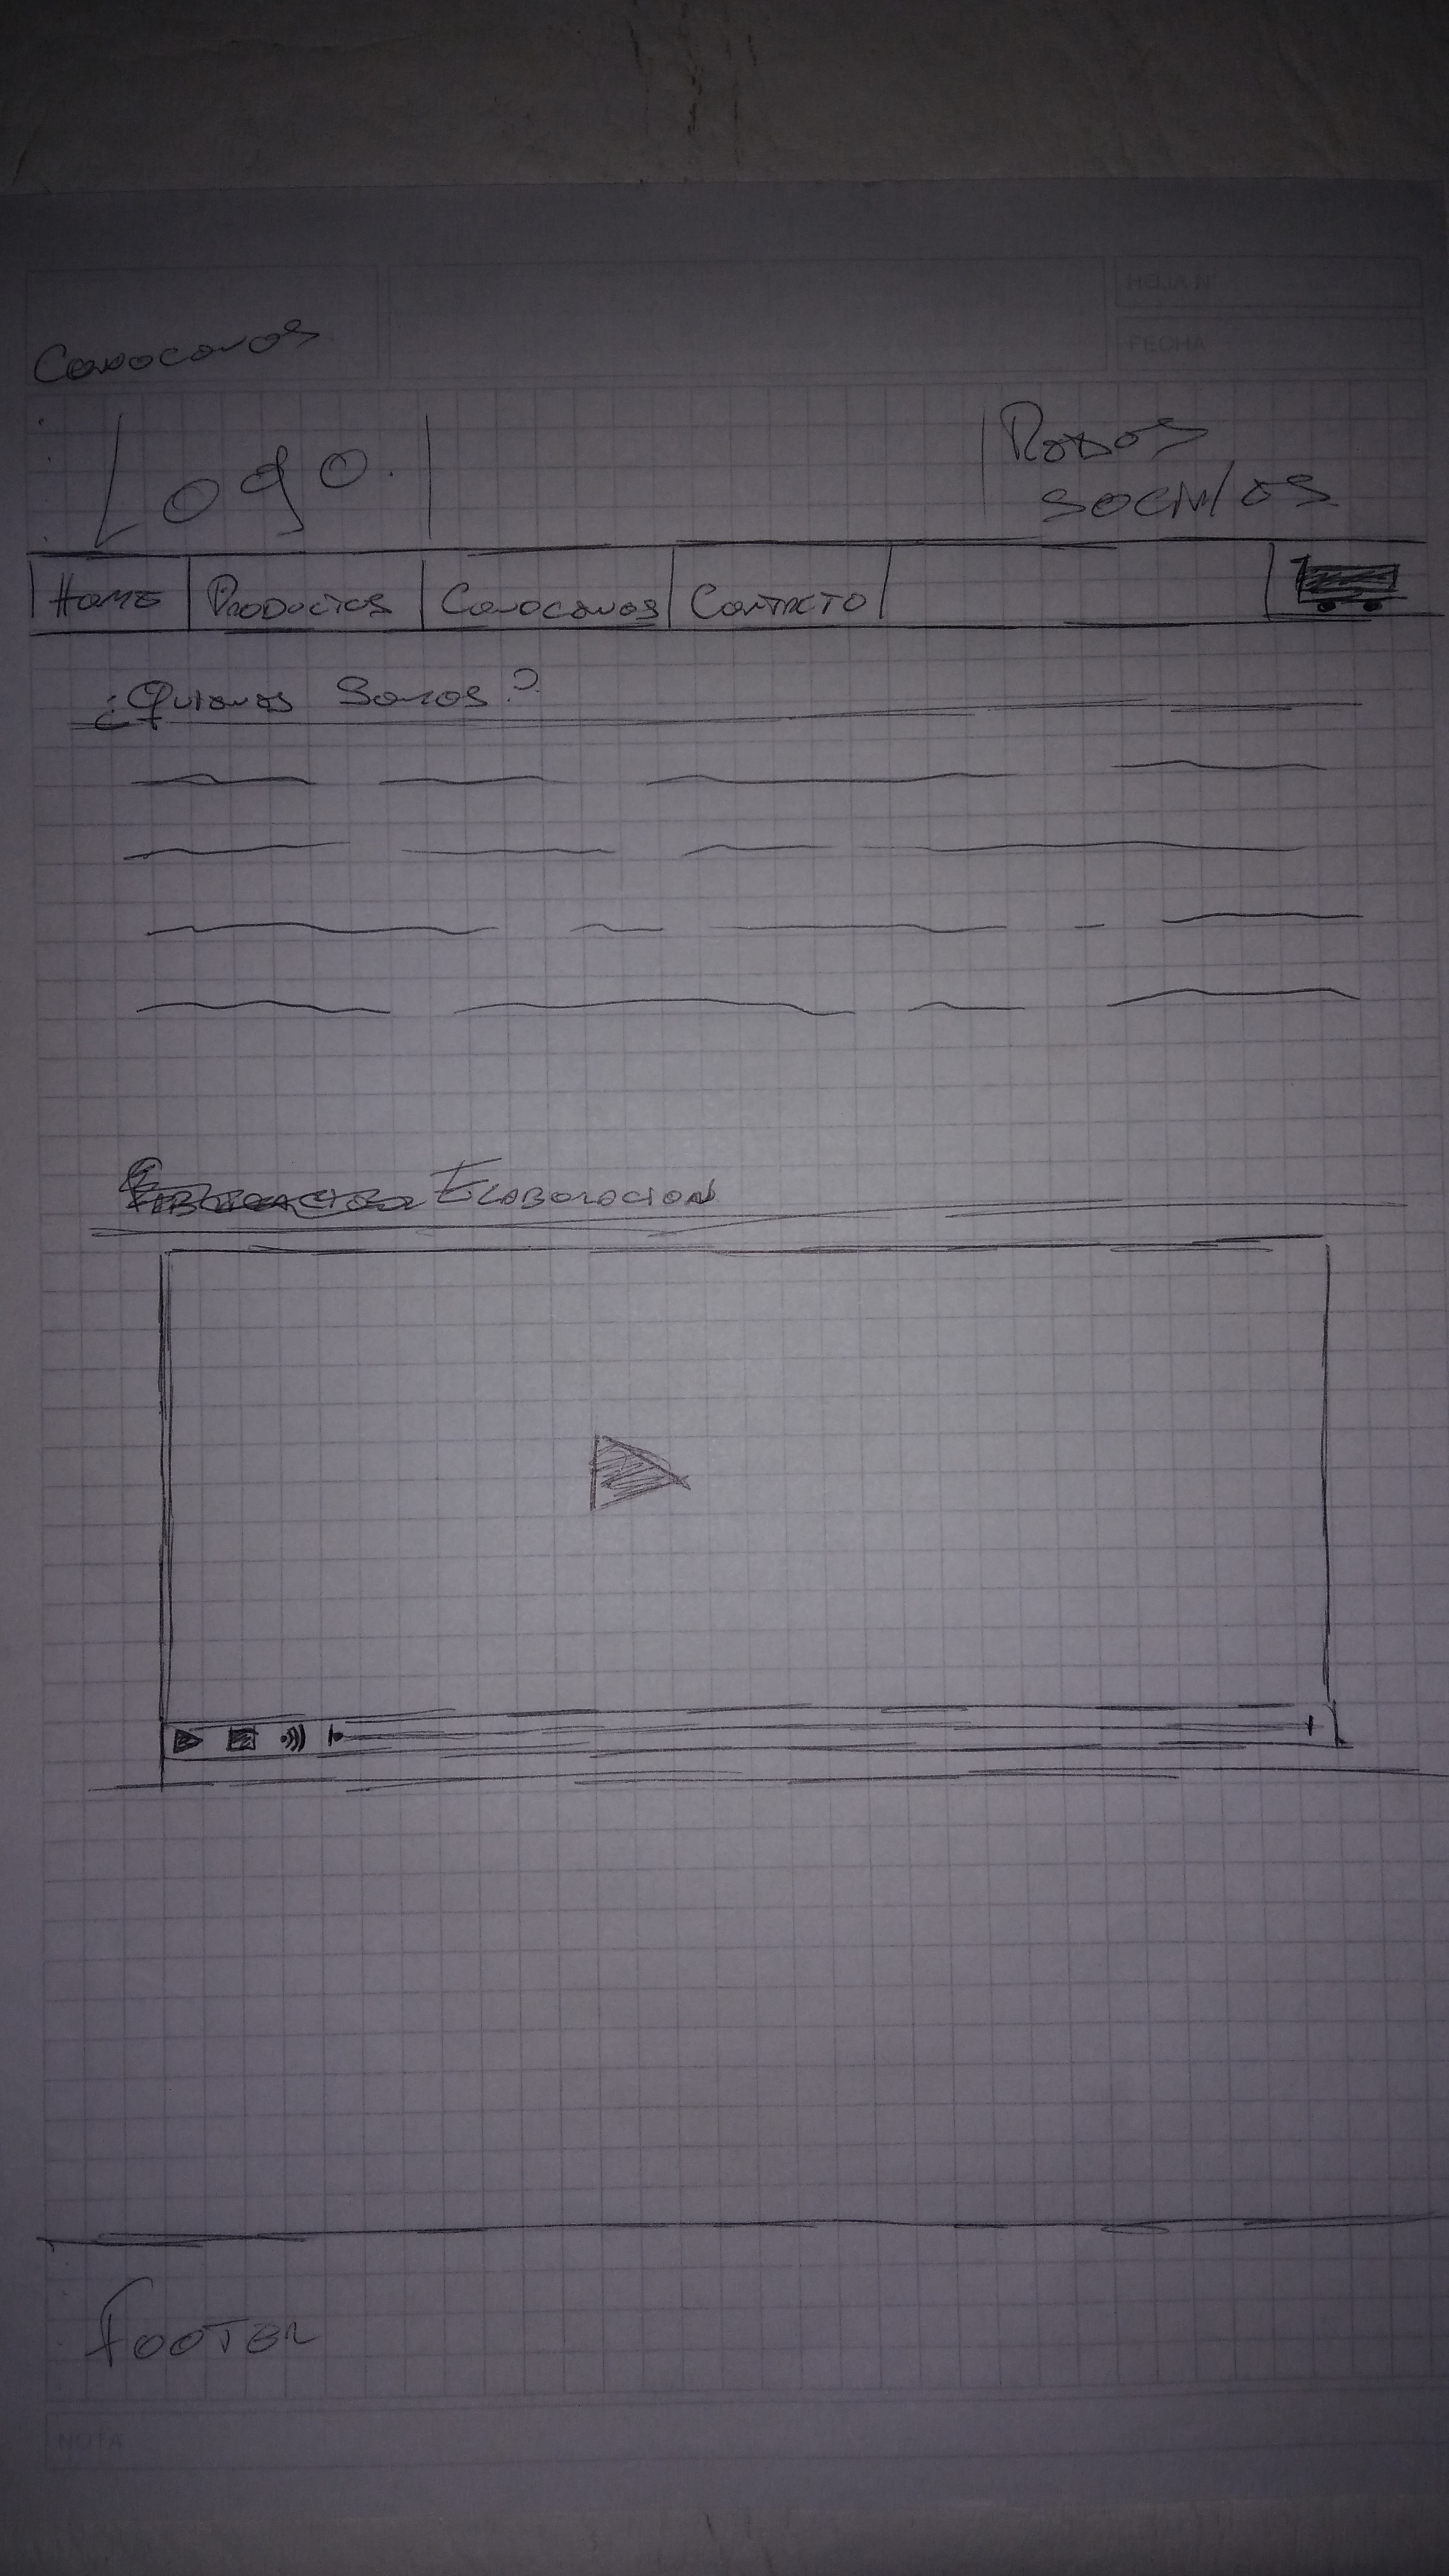 HOJA Nº
FECHA
Conocenos
Logo.
Redes
sociales
Home Productos Conocenos Contacto
¿Quienes Somos?
Elaboracion
Footer
NOTA